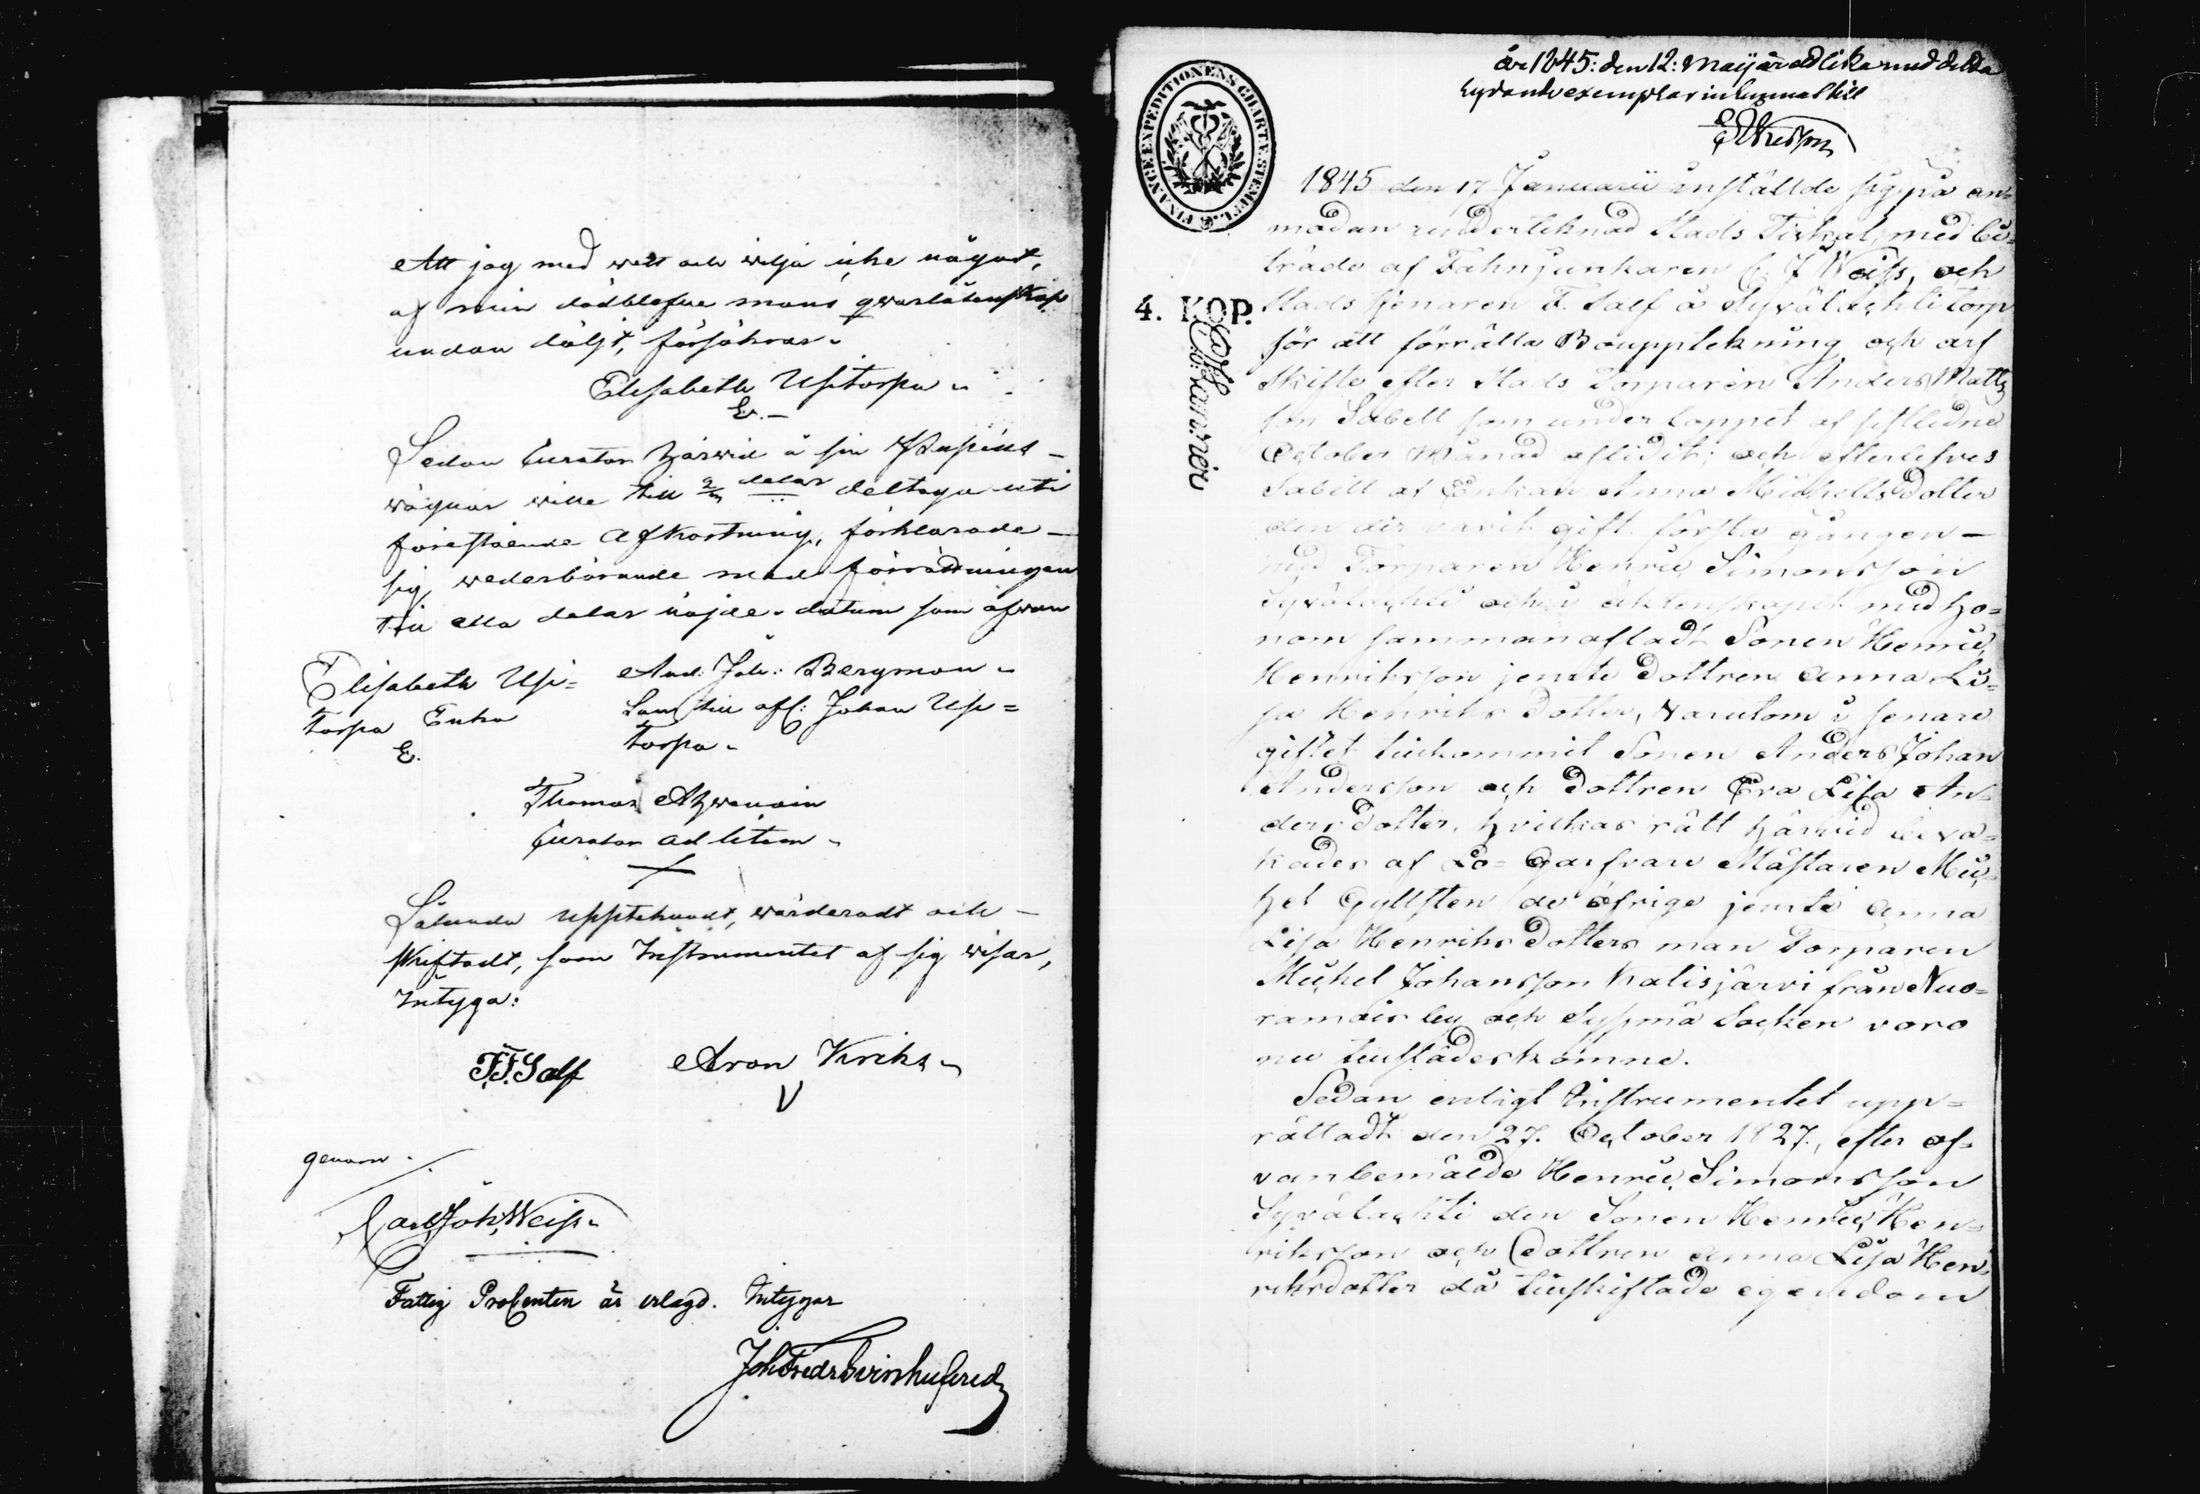 Att jag med wett och wilja icke något,
af min dödblefne mans qvarlåtenskap
undan döljt, försäkrar.
Elisabeth Usitorpa
E.
Sedan Curator härwid å sin Pupills
wägnar wille till 2/3 delar deltaga uti
förestående Afkortning, förklarade
sig wederbörande med förrättningen
till alla delar nöjde. datum som ofwan
Elisabeth Usi=
torpa Enka
E.
And: Joh: Bergman
Son till afl: Johan Usi=
torpa
Thomas
Curator ad litem
Sålunda upptecknadt, wärderadt och
skiftadt, som Instrumentet af sig wisar,
Intyga:
F.F. Salf Aron Kriks
genom
Carl Joh Weiss
Fattig Procenten är erlagd. Intygar
Joh Fredr Svinhufvud
FINANCE EXPEDITIONENS CHARTÆ STEMPEL
4. KOP.
år 1845: den 12: Maij är ett lika med detta
lydande exemplar inlemnat till
1845 den 17 Januarii inställde sig på an=
modan undertecknad Stads Fiskal, med bi=
träde af Fahnjunkaren C. J. Weiss, och
Stads tjenaren F. Salf å Syvälachti torp
för att förrätta Bouppteckning och arf
Skifte efter Stads Torparen Anders Matts
son Sabell som under loppet af sistledne
October Månad aflidit; och efterlefves
Sabell af Enkan Anna Michelsdotter
den der varit gift första gången
med Torparen Henric Simonsson
Syvälachti och i äktenskapet med ho=
nom sammanafladt Sonen Henric
Henriksson jemte dottren Anna Li=
sa Henriksdotter, Varutom i senare
giftet tillkommit Sonen Anders Johan
Andersson och dottren Eva Lisa An=
dersdotter, hvilkas rätt härvid beva=
kades af Lo-Garfvare Mästaren Mic=
hel Gyllsten de öfrige jemte Anna
Lisa Henriksdotters man Torparen
Michel Johansson Kalisjärvi från Nuo=
ramois by och Sysmä Socken voro
nu tillstädeskomne.
Sedan enligt Instrumentet upp=
rättadt den 27. October 1827, efter of=
vanbemälde Henric Simonsson
Syvälachti den Sonen Henric Hen=
riksson och Dottren Anna Lisa Hen=
riksdotter då tillskiftade egendom